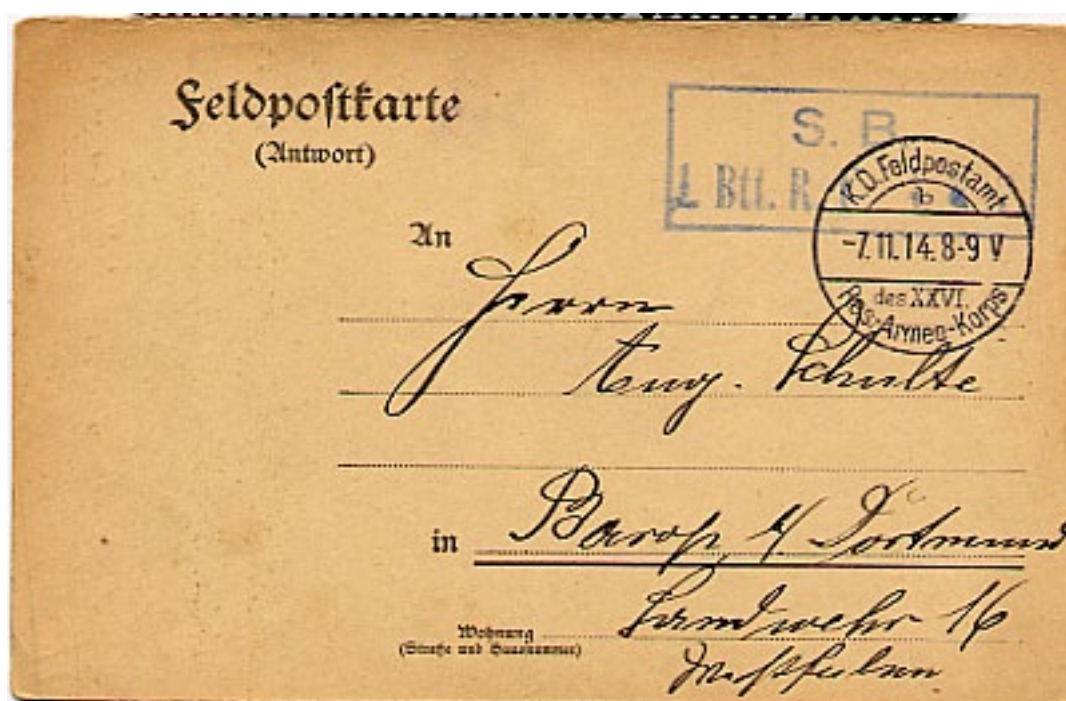 Feldpostkarte
(Antwort)
S. B.
1. Btl. R.
K.D. Feldpostamt
b
-7.11.14. 8-9 V
des XXVI.
Res.-Armee-Korps
An
Herrn
Aug. Schulte
in Barop, b/ Dortmund
Wohnung
(Straße und Hausnummer)
Landwehr 16
Westfalen